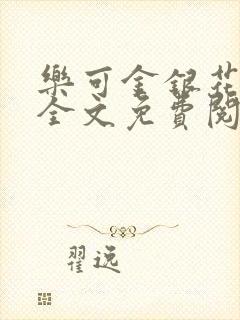 樂可金銀花
全文免費閱
翟逸